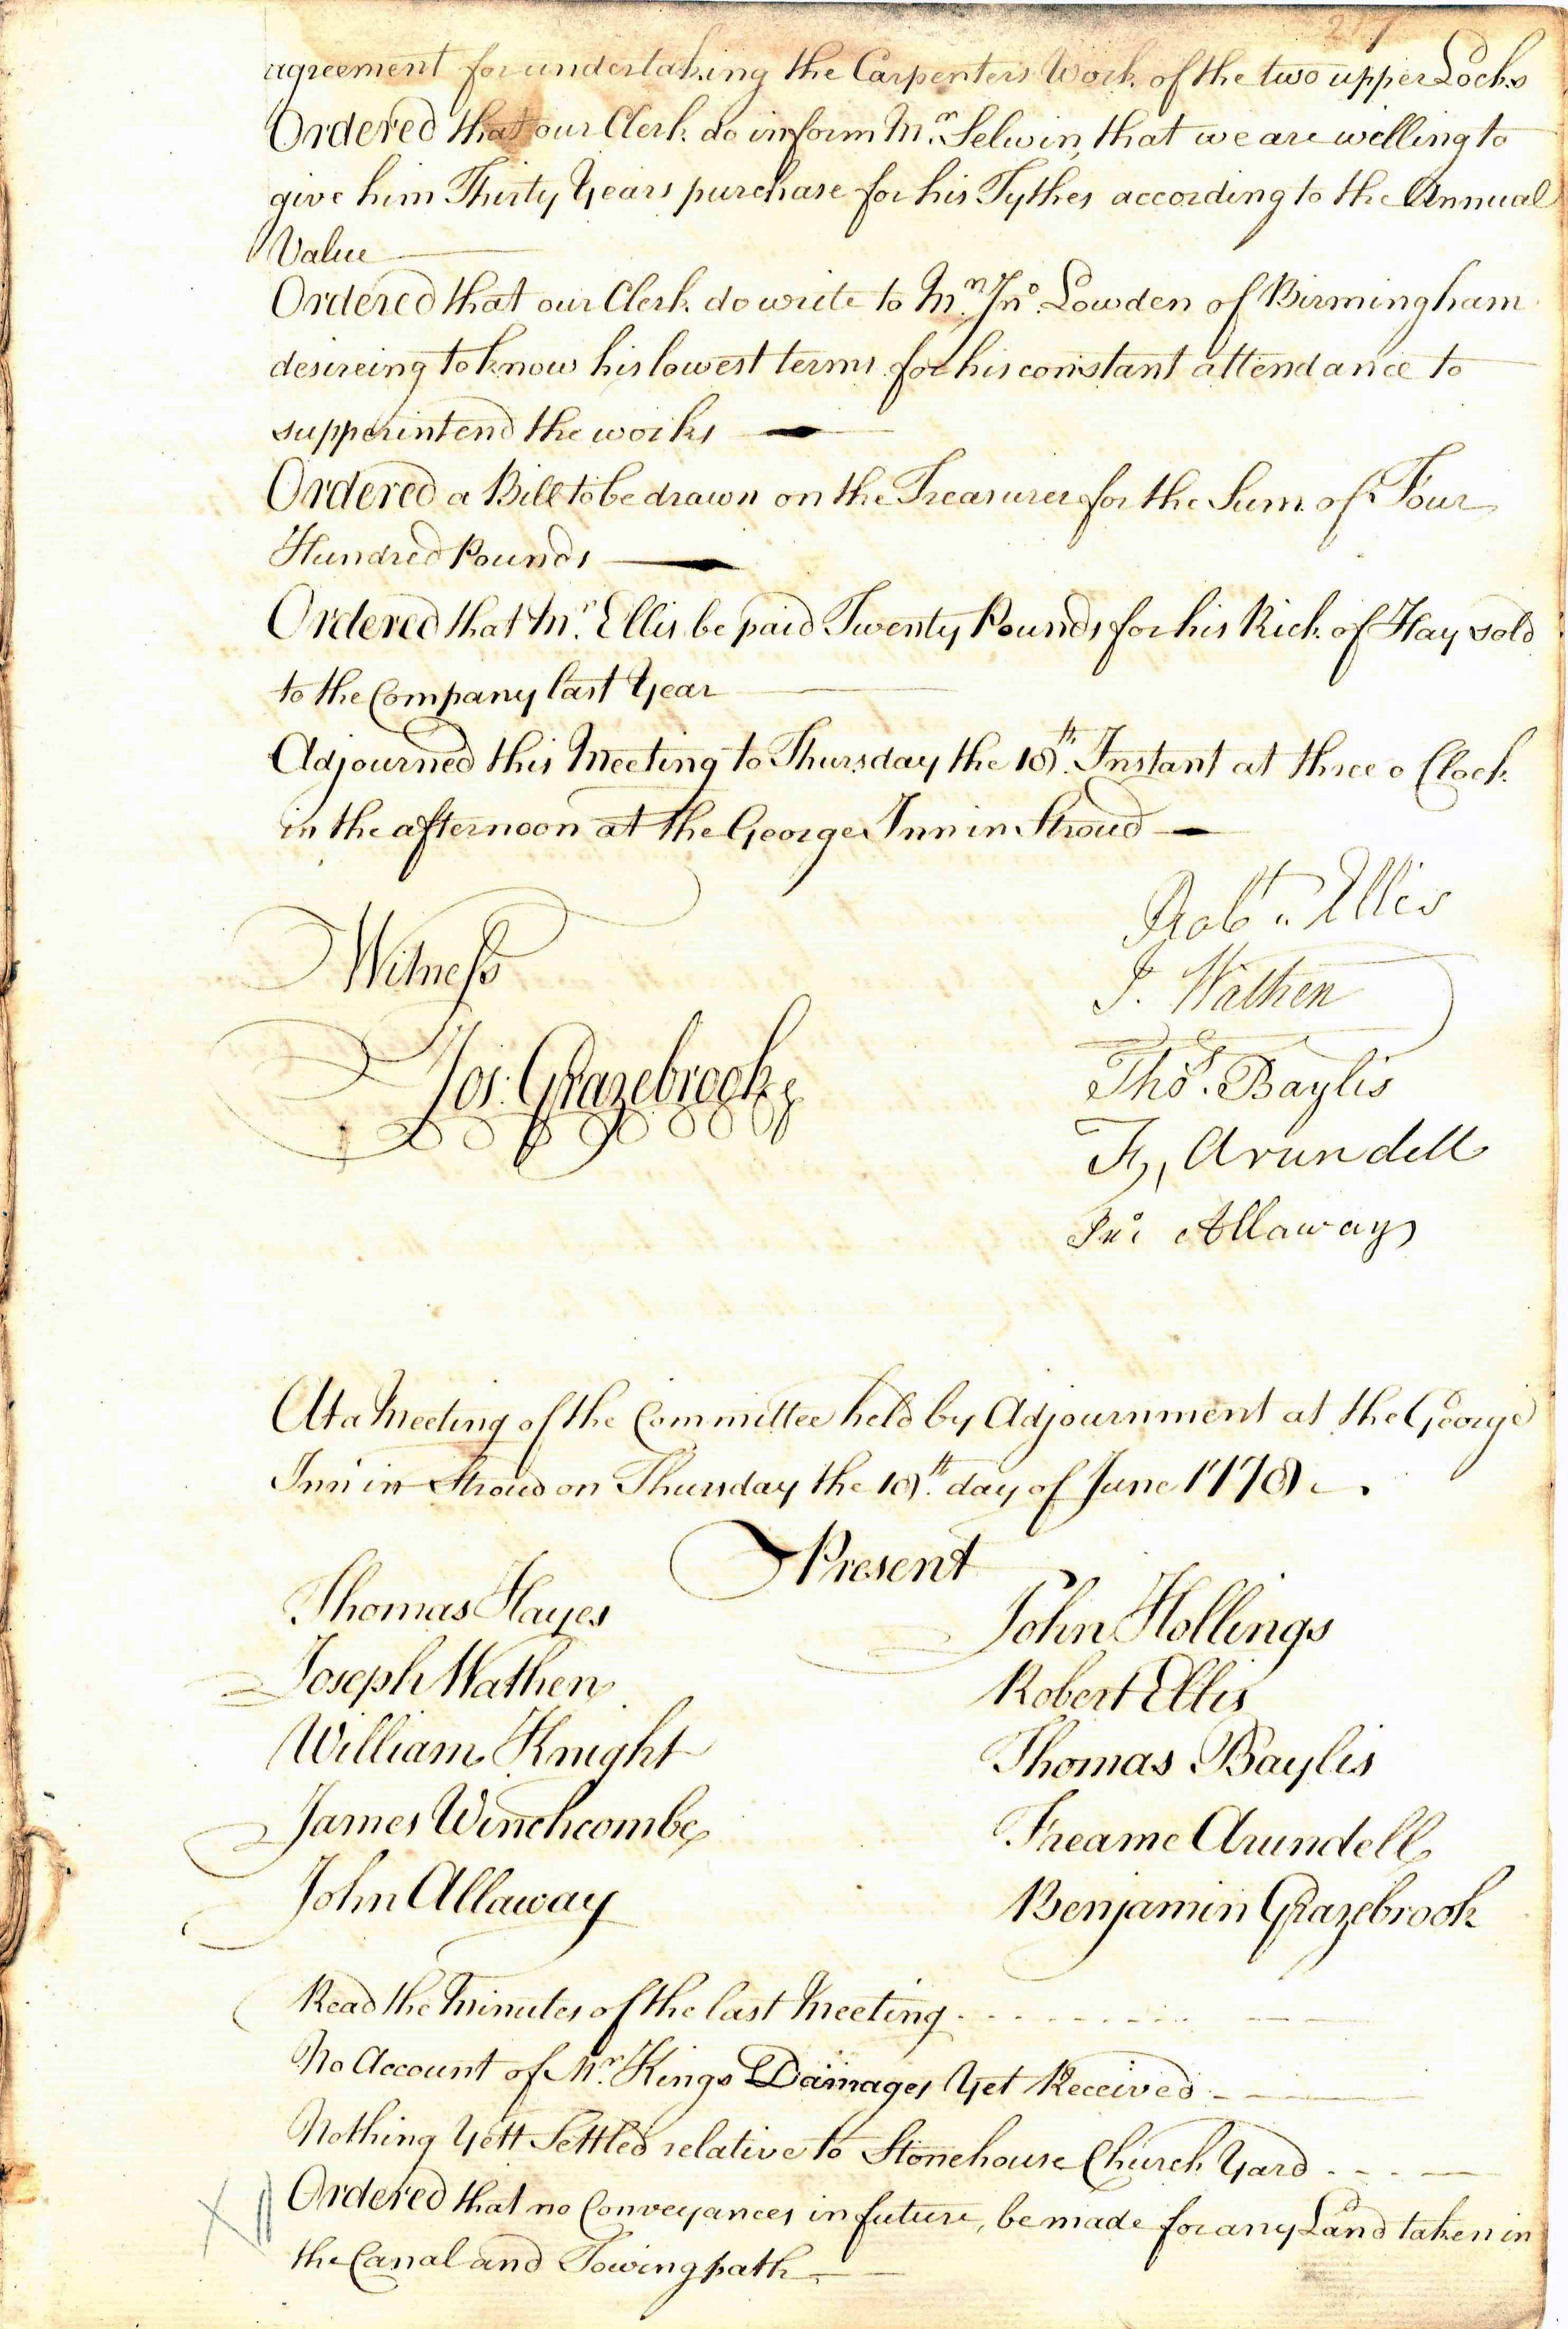 217
agreement for undertaking the Carpenters Work of the two upper Locks
Ordered that our Clerk do inform Mr. Selwin, that we are willing to
give him Thirty Years purchase for his Tythes according to the Annual
Value
Ordered that our Clerk do write to Mr. Jno. Lowden of Birmingham
desireing to know his lowest terms for his constant attendance to
supperintend the works
Ordered a Bill to be drawn on the Treasurer for the Sum of Four
Hundred Pounds
Ordered that Mr. Ellis be paid Twenty Pounds for his Rick of Hay sold
to the Company last Year
Adjourned this Meeting to Thursday the 18th. Instant at three o Clock
in the afternoon at the George Inn in Stroud
Witness
Jos: Grazebrook
Robt. Ellis
J. Wathen
Thos. Baylis
F, Arundell
Jno Allaway
At a Meeting of the Committee held by Adjournment at the George
Inn in Stroud on Thursday the 18th. day of June 1778
Present
Thomas Hayes
John Hollings
Joseph Wathen
Robert Ellis
William Knight
Thomas Baylis
James Winchcombe
Freame Arundell
John Allaway
Benjamin Grazebrook
Read the Minutes of the last Meeting
No Account of Mr. Kings Damages Yet Received
Nothing Yett Settled relative to Stonehouse Church Yard
X Ordered that no Conveyances in future, be made for any Land taken in
the Canal and Towing path